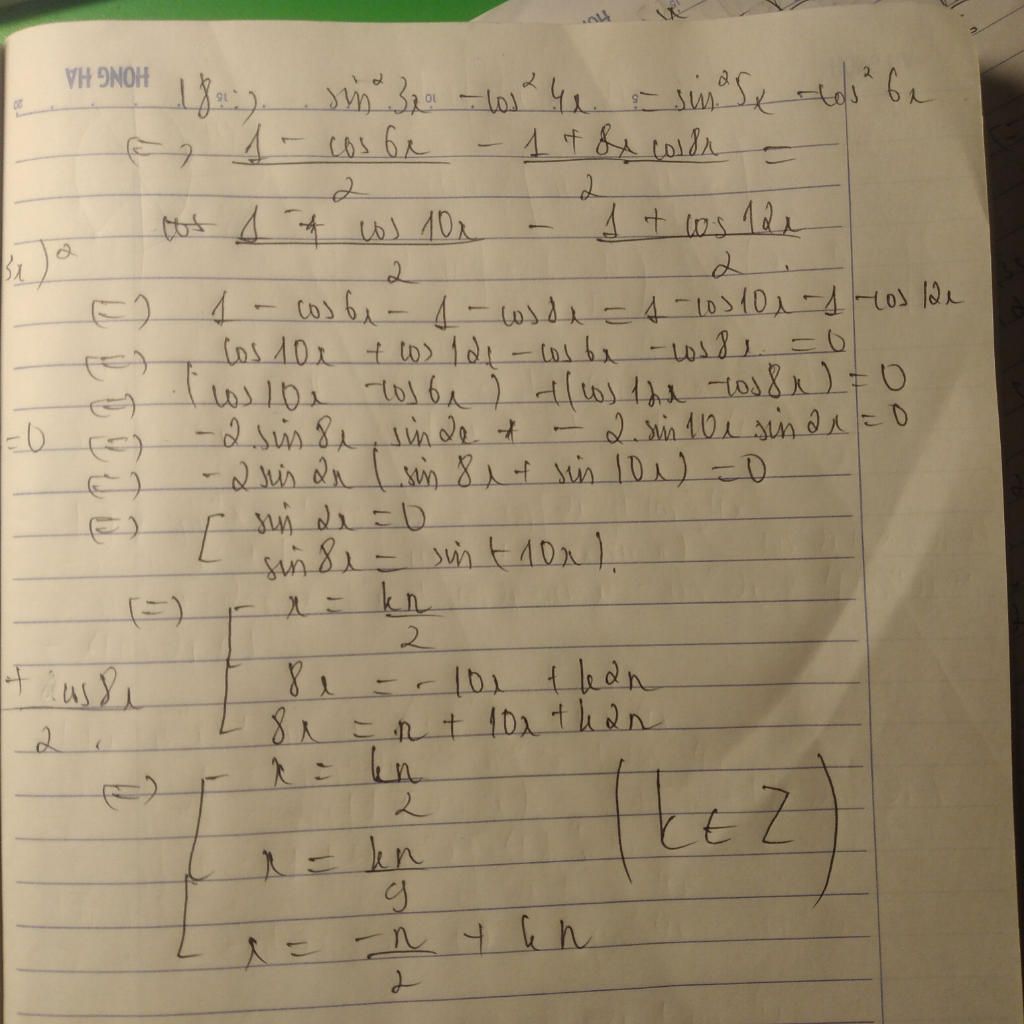 HONG HA
18:, sin²3x - cos²4x = sin²5x - cos²6x
(=) (1 - cos6x)/2 - (1 + 8x cos8x)/2 =
cos (1 - cos 10x)/2 - (1 + cos 12x)/2.
3x)²
(=) 1 - cos6x - 1 - cos8x = 1 - cos10x - 1 - cos 12x
(=) cos 10x + cos 12x - cos6x - cos8x = 0
(=) (cos10x - cos6x) + (cos12x - cos8x) = 0
=0 (=) -2.sin8x.sin2x + - 2.sin10x.sin2x = 0
(=) -2sin2x (sin8x + sin10x) = 0
(=) [ sin 2x = 0
sin8x = sin(-10x).
(=) [ x = kπ/2
8x = -10x + k2π
+ cos8x/2. 8x = π + 10x + k2π
(=) [ x = kπ/2
x = kπ/9 (k ∈ Z)
x = -π/2 + kπ